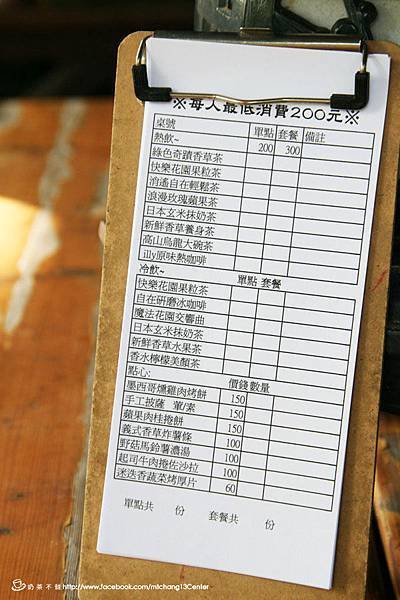 ※每人最低消費200元※
桌號 單點 套餐 備註
熱飲~ 200 300
綠色奇蹟香草茶
快樂花園果粒茶
消遙自在輕鬆茶
浪漫玫瑰蘋果茶
日本玄米抹奶茶
新鮮香草養身茶
高山烏龍大碗茶
illy原味熱咖啡
冷飲~ 單點 套餐
快樂花園果粒茶
自在研磨冰咖啡
魔法花園交響曲
日本玄米抹奶茶
新鮮香草水果茶
香水檸檬美顏茶
點心: 價錢 數量
墨西哥燻雞肉烤餅 150
手工披薩 葷/素 150
蘋果肉桂捲餅 150
義式香草炸薯條 100
野菇馬鈴薯濃湯 100
起司牛肉捲佐沙拉 100
迷迭香蔬菜烤厚片 60
單點共 份 套餐共 份
奶茶不甜 http://www.facebook.com/michang13Center